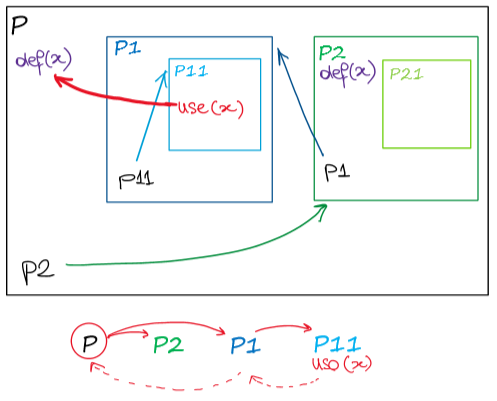 P
def(x)
P1
P11
use(x)
P11
P2
def(x)
P21
P1
P2
P P2 P1 P11
uso(x)